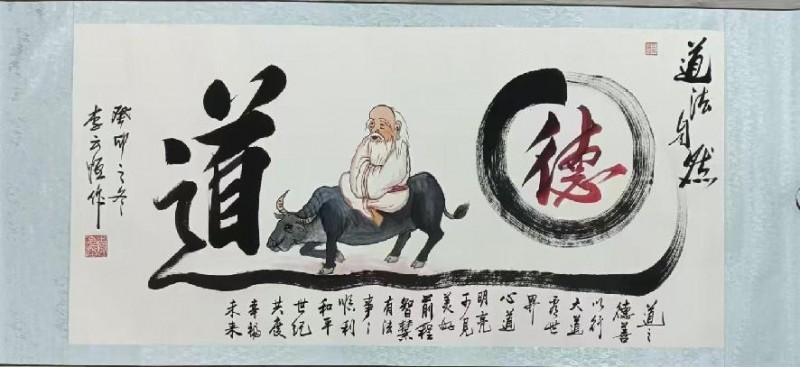 道法自然
德
道
道之
德善
以行
大道
看世
界
心道
明亮
可见
美好
前程
智慧
有法
事々
顺利
和平
世纪
共度
幸福
未来
癸卯之冬
李云恒作